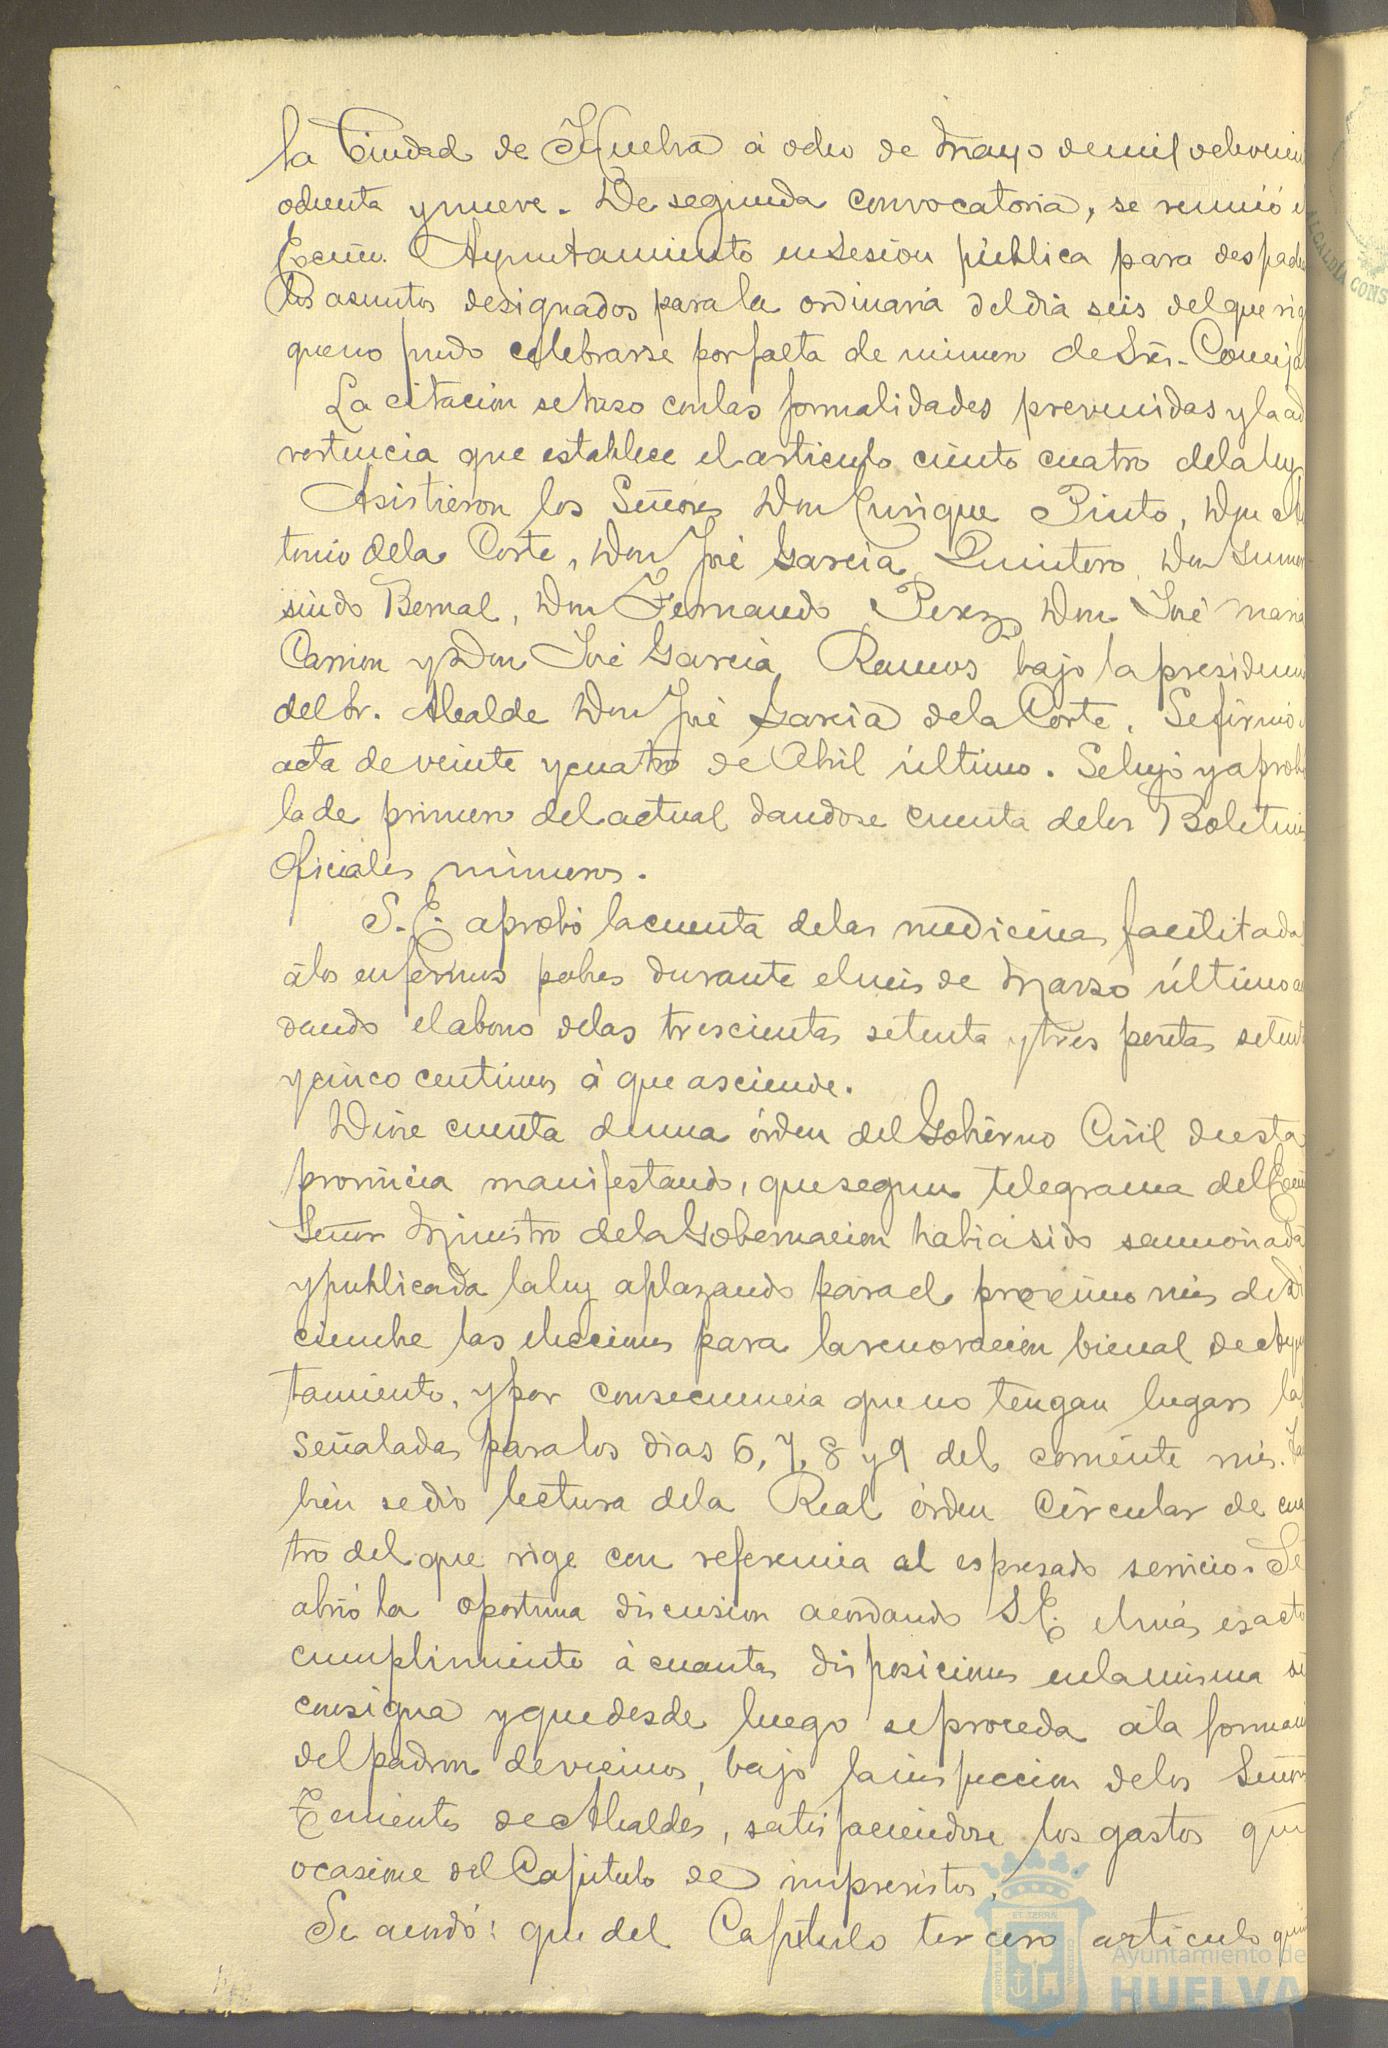 la Ciudad de Huelva á ocho de Mayo de mil ochocien
ochenta y nueve. De segunda convocatoria, se reunió e
Excmo. Ayuntamiento en sesion pública para despach
los asuntos designados para la ordinaria del dia seis del que rig
que no pudo celebrarse por falta de número de Sres. Conceja
La citacion se hizo con las formalidades prevenidas y la ad
vertencia que establece el articulo ciento cuatro de la ley
Asistieron los Señores Don Enrique Pinto, Don An
tonio de la Corte, Don José Garcia Quintero, Don Gumer
sindo Bernal, Don Fernando Perez Don José Maria
Carrion y Don José Garcia Ramos bajo la presidenc
del Sr. Alcalde Don José Garcia de la Corte. Se firmó e
acta de veinte y cuatro de Abril último. Se leyó y aprobó
la de primero del actual dandose cuenta de los Boletines
oficiales números.
S. E. aprobó la cuenta de las medicinas facilitadas
á los enfermos pobres durante el mes de Marzo último a
dando el abono de las trescientas setenta y tres pesetas setent
y cinco centimos á que asciende.
Diose cuenta de una órden del Gobierno Civil de esta
provincia manifestando, que segun telegrama del Excmo
Señor Ministro de la Gobernacion habia sido sancionada
y publicada la ley aplazando para el proximo mes de Di
ciembre las elecciones para la renovacion bienal de Ayun
tamiento, y por consecuencia que no tengan lugar las
señaladas para los dias 6, 7, 8 y 9 del corriente mes. Tam
bien se dió lectura de la Real órden Circular de cua
tro del que rige con referencia al espresado servicio. Se
abrió la oportuna discusion acordando S. E. el más exacto
cumplimiento á cuantas disposiciones en la misma se
consigna y que desde luego se proceda á la formaci
del padron de vecinos, bajo la inspeccion de los Señores
Tenientes de Alcaldes, satisfaciendose los gastos que
ocasione del Capitulo de imprevistos.
Se acordó: que del Capitulo tercero articulo quin
ALCALDÍA CONS
Ayuntamiento de
HUELVA